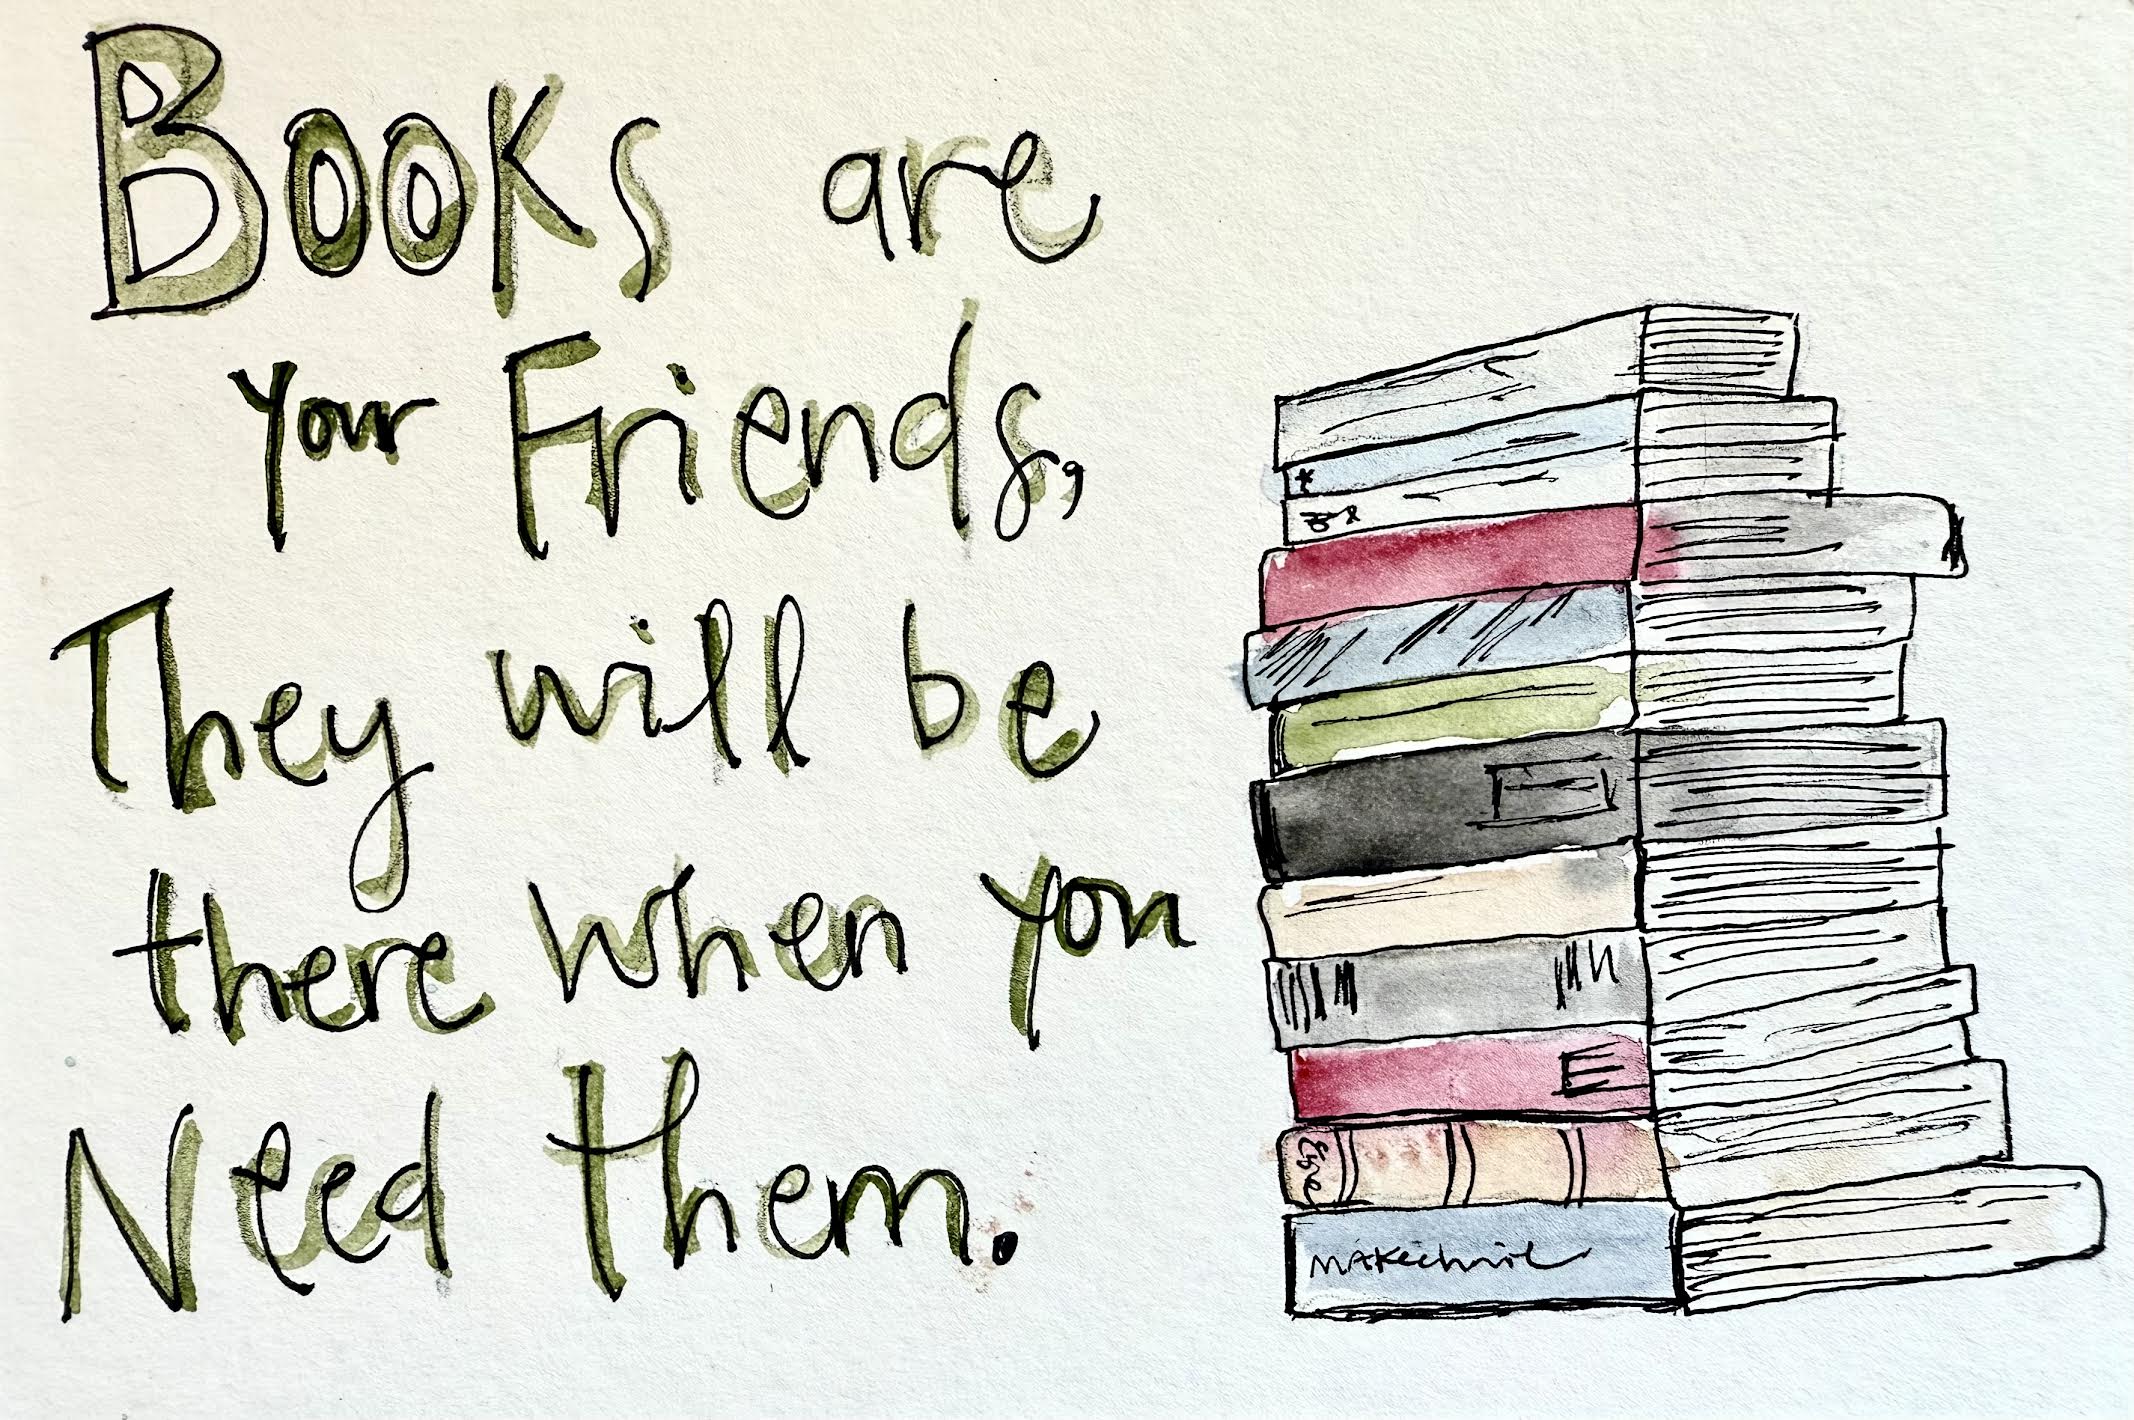 Books are
your Friends,
They will be
there when you
Need them.
E